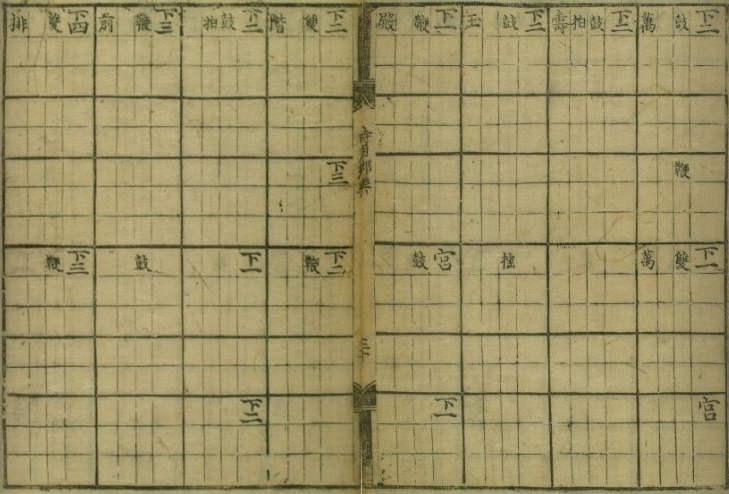 下二 下一 宮
鼓 鞭 雙
萬 萬
下二
鼓
拍
壽
下二
鼓
玉
下一 宮 下一
鞭 鼓
殿
時用鄕樂
下二 下三 下二
雙 鞭
階
下二 下一 下二
鼓
拍
下三
鞭 鼓
前
下四 下三
雙 鞭
排